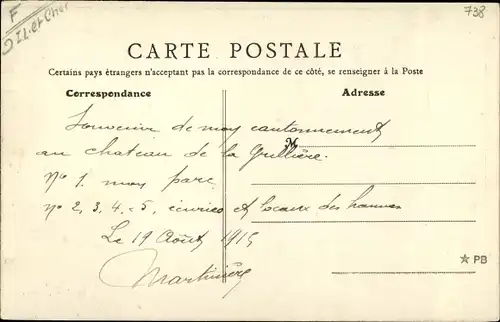 F
Ill. et Cher
738
CARTE POSTALE
Certains pays étrangers n'acceptant pas la correspondance de ce côté, se renseigner à la Poste
Correspondance
Adresse
M
Souvenir de moy cantonnement
au chateau de la Grillière.
No 1. moy parc
No 2, 3, 4 - 5, écuries et locaux des hommes
Le 19 Août 1915
Martinière
★ PB